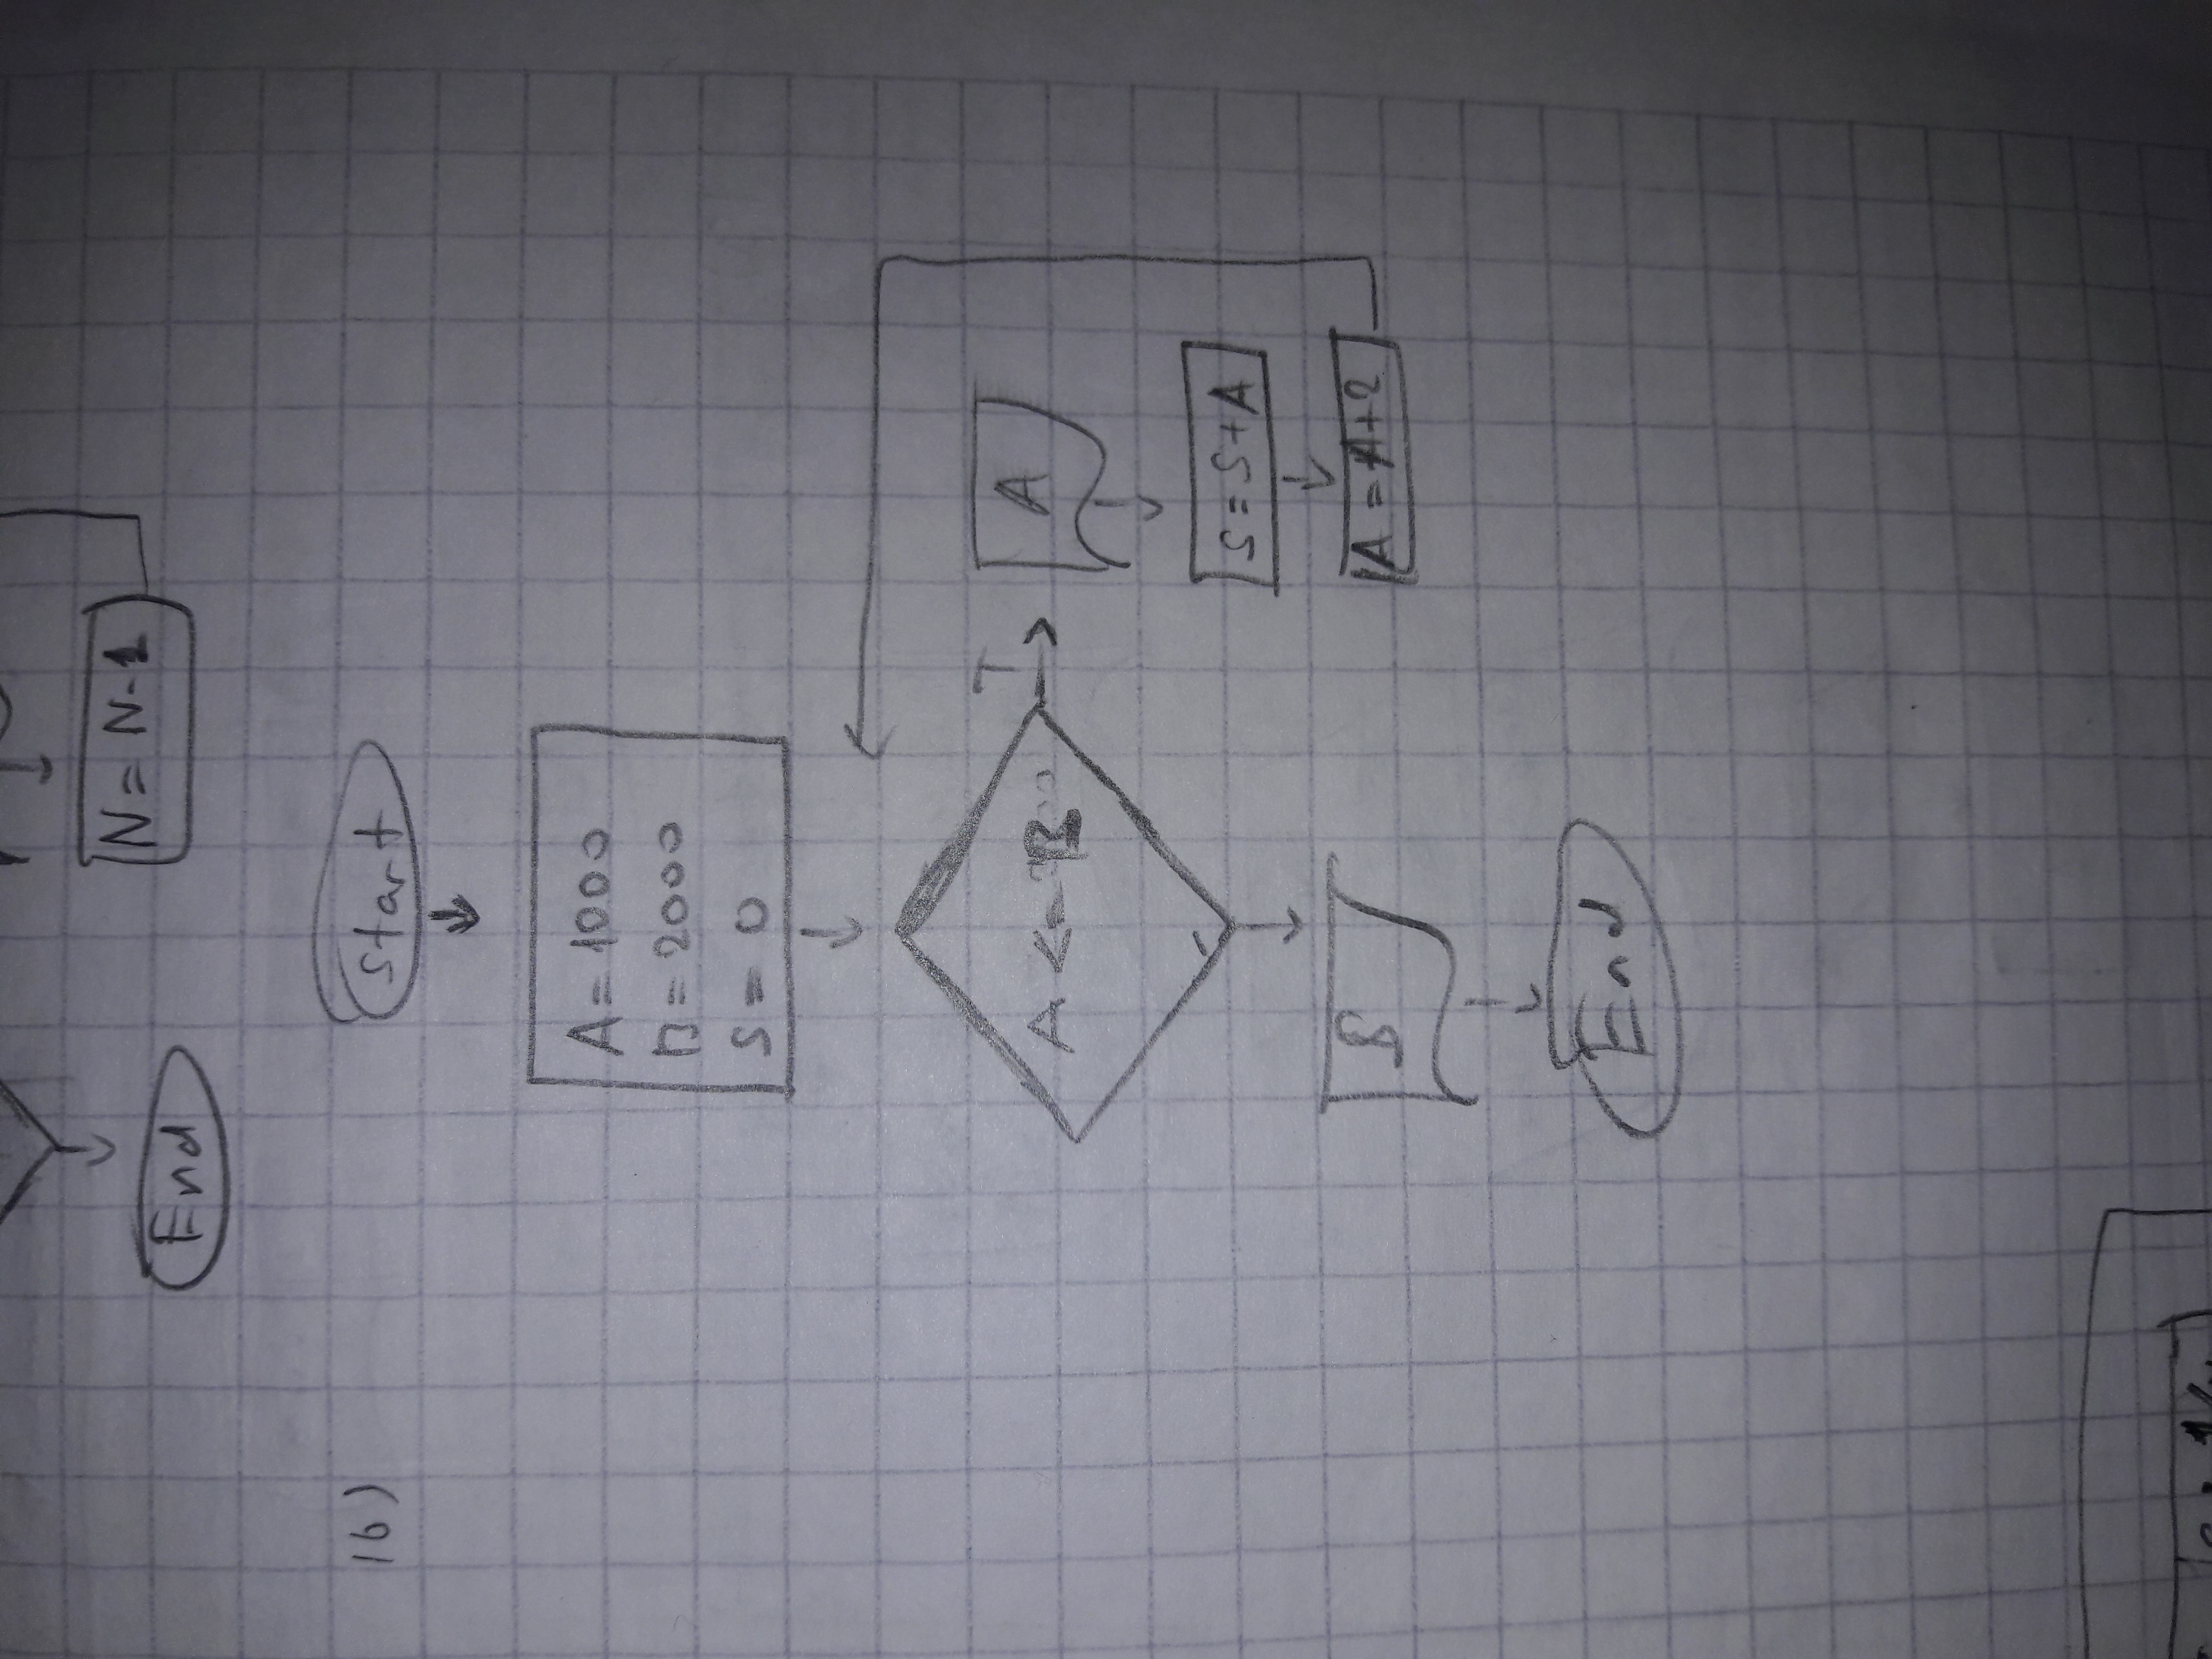 N = N-1
End
16)
Start
A = 1000
B = 2000
S = 0
T
A <= B
A
S = S+A
A = A+2
S
End